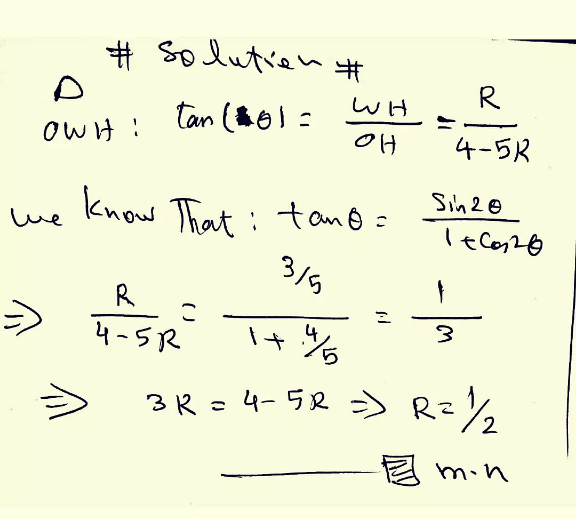 # Solution #
Δ OWH : tan(θ) = WH/OH = R/4-5R
we know That : tanθ = Sin2θ/1+Cos2θ
⇒ R/4-5R = 3/5/1+4/5 = 1/3
⇒ 3R = 4-5R ⇒ R=1/2
m.n